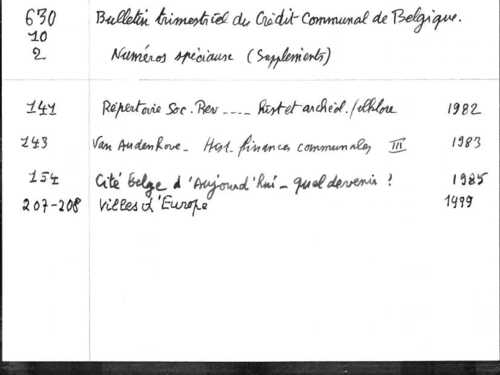 630 Bulletin trimestriel du Crédit Communal de Belgique.
10
2 Numéros spéciaux (Suppléments)
141 Répertoire Soc. Rev .... hist et archéol. / folklore 1982
143 Van Audenhove - Hist. finances communales III 1983
154 Cité belge d'Aujourd'hui - quel devenir ? 1985
207-208 Villes d'Europe 1999